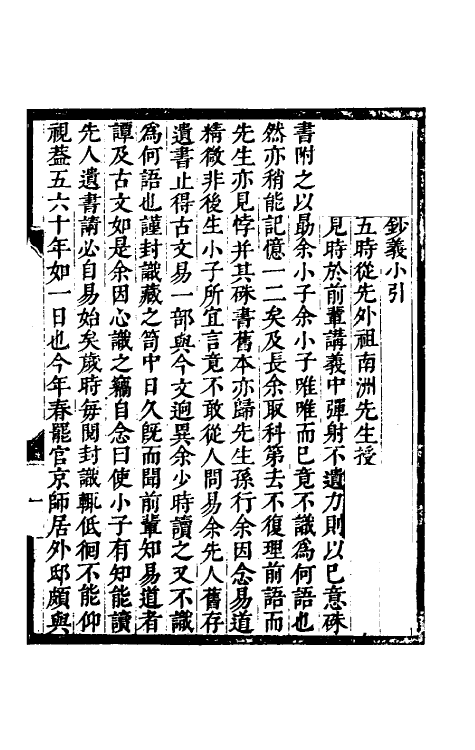 鈔義小引
五時從先外祖南洲先生授
見時於前輩講義中彈射不遺力則以已意硃
書附之以勗余小子余小子唯唯而已竟不識爲何語也
然亦稍能記憶一二矣及長余取科第去不復理前語而
先生亦見悖并其硃書舊本亦歸先生孫行余因念易道
精微非後生小子所宜言竟不敢從人問易余先人舊存
遺書止得古文易一部與今文逈異余少時讀之又不識
爲何語也謹封識藏之笥中日久旣而聞前輩知易道者
譚及古文如是余因心識之竊自念曰使小子有知能讀
先人遺書請必自易始矣歲時每閱封識輒低徊不能仰
視葢五六十年如一日也今年春罷官京師居外邸頗與
一